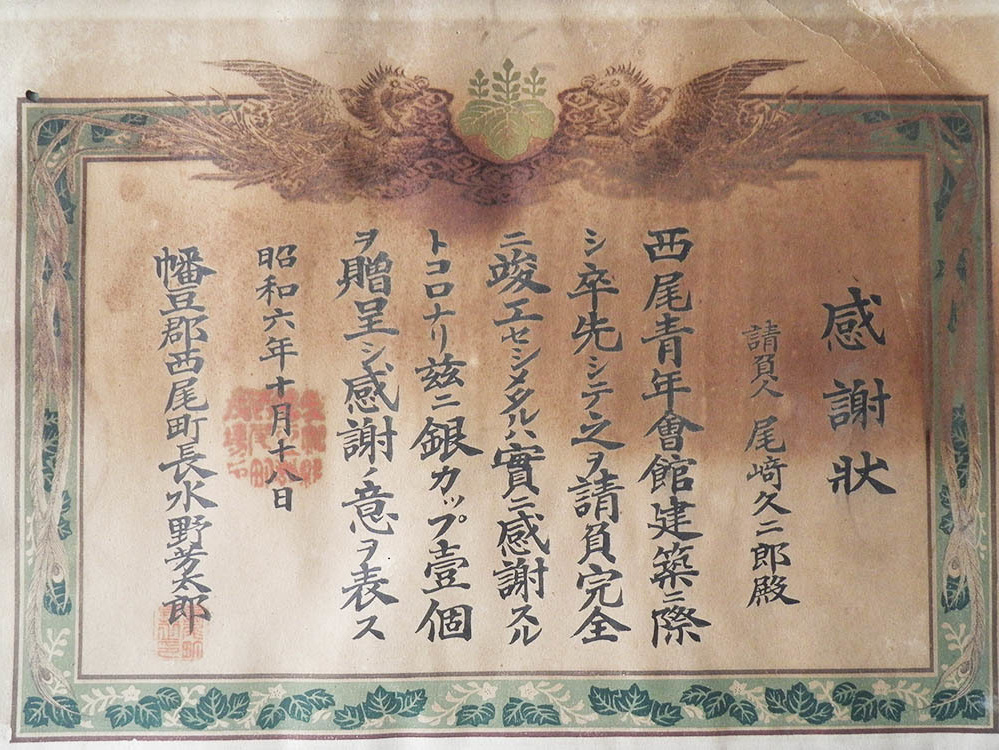 感謝狀
請負人 尾﨑久二郎殿
西尾青年會館建築ニ際
シ卒先シテ之ヲ請負完全
ニ竣工セシメタルハ實ニ感謝スル
トコロナリ茲ニ銀カップ壹個
ヲ贈呈シ感謝ノ意ヲ表ス
昭和六年十月十八日
幡豆郡西尾町長水野芳太郎